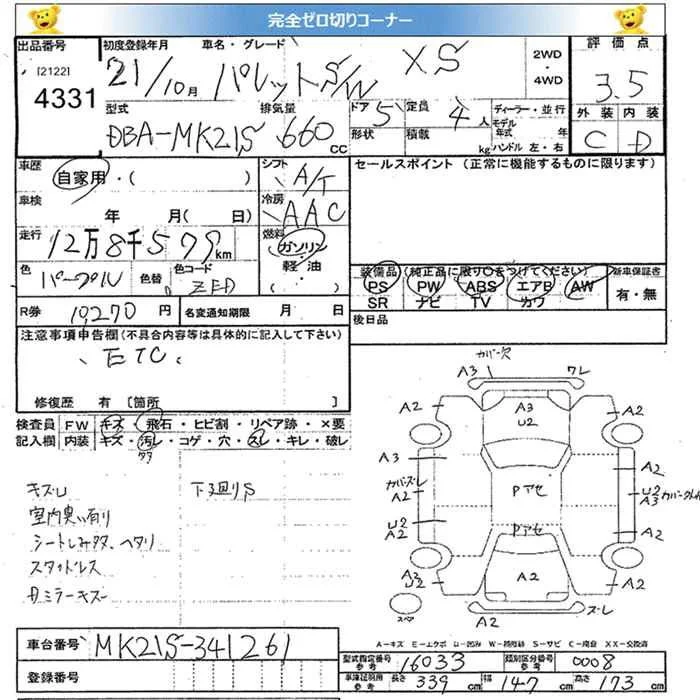 完全ゼロ切りコーナー
出品番号 初度登録年月 車名・グレード 2WD・4WD 評価点
[2122] 4331 21/10月 パレットS/W XS 3.5
型式 排気量 ドア 定員 ディーラー・並行 外装 内装
DBA-MK21S 660cc 5 4人 モデル年式 年 C D
形状 積載 kg ハンドル 左・右
車歴 自家用・( ) シフト A/T セールスポイント (正常に機能するものに限ります)
車検 年 月( 日) 冷房 AAC
走行 12万8千579km 燃料 ガソリン・軽・油・( )
色 パープル 色替 色コード ZED
装備品 (純正品に限り〇をつけてください) 新車保証書
PS PW ABS エアB AW 有・無
SR ナビ TV カワ
R券 10270円 名変通知期限 月 日 後日品
注意事項申告欄(不具合内容等は具体的に記入して下さい)
、ETC、
修復歴 有 [箇所 ]
検査員 FW キズ・飛石・ヒビ割・リペア跡・×要
記入欄 内装 キズ・汚レ・コゲ・穴・スレ・キレ・破レ
キズレ 下廻りS
室内臭い有り
シートしみタタ、ヘタリ
スタッドレス
カバー欠
A3 ワレ
A2 A3 U2 A2
A3 A2
カバーズレ A2 Pアセ U2 A3
U2 A2 Pアセ A2
A3 U2 A2 A2
A2 ズレ
スペア
A-キズ E-エクボ U-凹み W-補修跡 S-サビ C-腐食 XX-交換済
車台番号 MK21S-341261
型式指定番号 参考 16033 類別区分番号 参考 0008
登録番号
車庫証明用 参考 長さ 339cm 幅 147cm 高さ 173cm